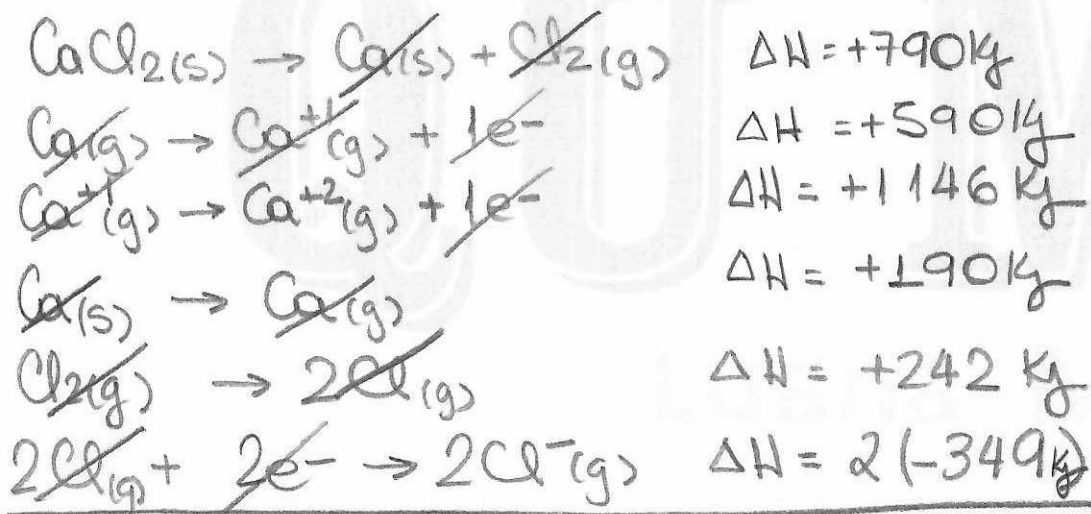 CaCl2(s) → Ca(s) + Cl2(g) ΔH = +790 kJ
Ca(g) → Ca+1(g) + 1e- ΔH = +590 kJ
Ca+1(g) → Ca+2(g) + 1e- ΔH = +1 146 kJ
Ca(s) → Ca(g) ΔH = +190 kJ
Cl2(g) → 2Cl(g) ΔH = +242 kJ
2Cl(g) + 2e- → 2Cl-(g) ΔH = 2(-349 kJ)